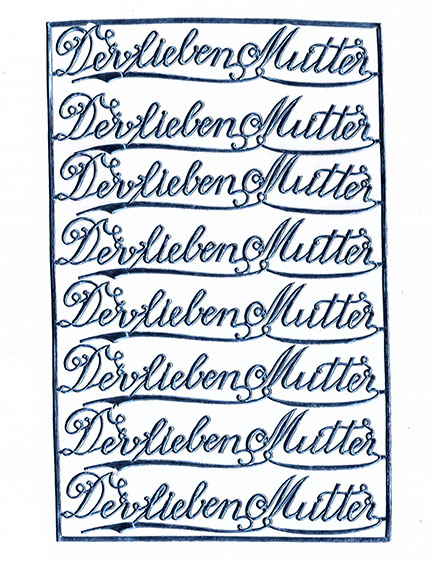 Der lieben Mutter
Der lieben Mutter
Der lieben Mutter
Der lieben Mutter
Der lieben Mutter
Der lieben Mutter
Der lieben Mutter
Der lieben Mutter